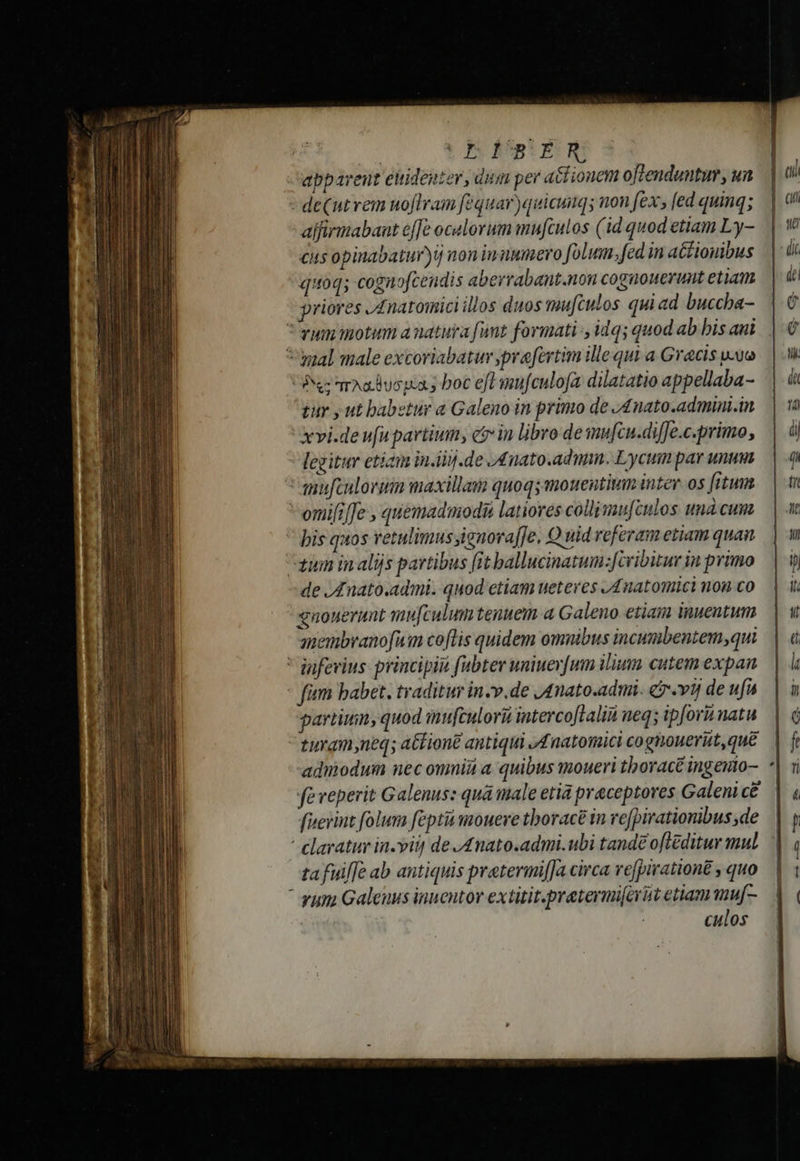 LIBER
apparent euidenter, dum per actionem ostenduntur, un
de(ut rem nostram sequar)quicunq; non sex, sed quinq;
affirmabant esse oculorum musculos (id quod etiam Ly-
cus opinabatur)ij non in numero solum, sed in actionibus
quoq; cognoscendis aberrabant. non cognouerunt etiam
priores Anatomici illos duos musculos qui ad buccha-
rum motum a natura sunt formati, idq; quod ab his ani
mal male excoriabatur, præsertim ille qui a Græcis μυῶ
δες πλάτυσμα, hoc est musculosa dilatatio appellaba-
tur, ut habetur a Galeno in primo de Anato.admini.in
xvi.de usu partium, & in libro de muscu.disse.c.primo,
legitur etiam in.iiij.de Anato.admin. Lycum par unum
musculorum maxillam quoq; mouentium inter os situm
omisisse, quemadmodũ latiores colli musculos unà cum
his quos retulimus, ignorasse. Quid referam etiam quan
tum in alijs partibus sit hallucinatum: scribitur in primo
de Anato.admi. quod etiam ueteres Anatomici non co
gnouerunt musculum tenuem a Galeno etiam inuentum
membranosum costis quidem omnibus incumbentem, qui
inferius principiũ subter uniuersum ilium cutem expan
sum habet. traditur in.v.de Anato.admi. &.vij de usu
partium, quod musculorũ intercostaliũ neq; ipsorũ natu
turam, neq; actionẽ antiqui Anatomici cognouerũt, quẽ
admodum nec omniũ a quibus moueri thoracẽ ingenio-
se reperit Galenus: quã male etiã præceptores Galeni cẽ
suerint solum septũ mouere thoracẽ in respirationibus, de
claratur in.viij de Anato.admi.ubi tandẽ ostẽditur mul
ta fuisse ab antiquis prætermissa circa respirationẽ, quo
rum Galenus inuentor extitit. prætermiserũt etiam mus-
culos